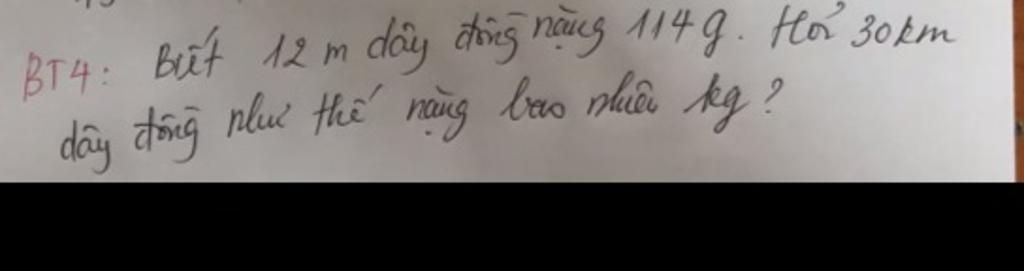 BT4: Biết 12 m dây đồng nặng 114g. Hỏi 30km
dây đồng như thế nặng bao nhiêu kg?